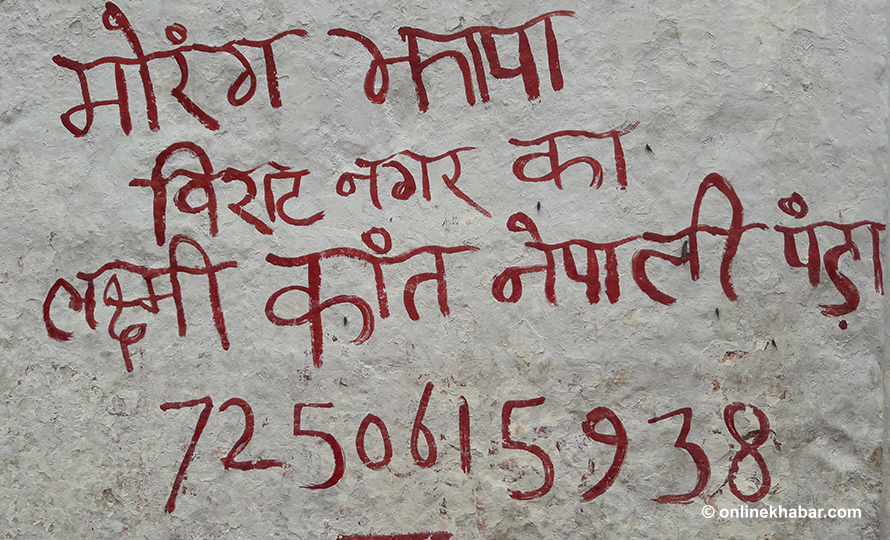 मोरंग झापा
विराट नगर का
लक्ष्मी कांत नेपाली पंड़ा
7250615938
© onlinekhabar.com